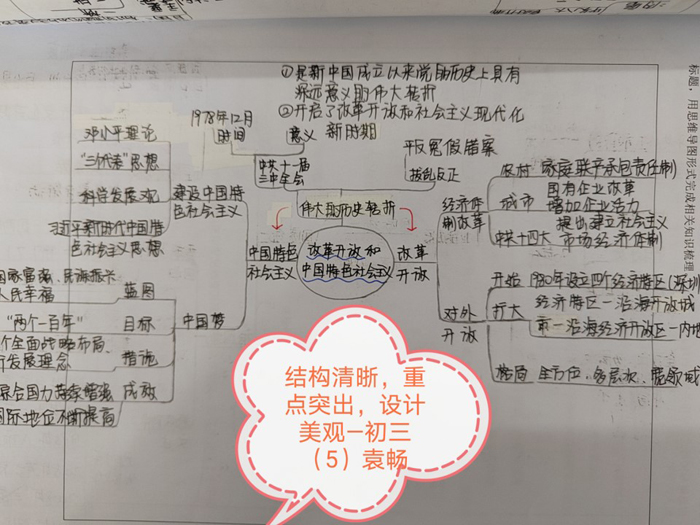 ①是新中国成立以来党的历史上具有
深远意义的伟大转折
②开启了改革开放和社会主义现代化
新时期
1978年12月
时间
意义
中共十一届
三中全会
平反冤假错案
拨乱反正
伟大的历史转折
改革开放和
中国特色社会主义
中国特色
社会主义
建设中国特
色社会主义
邓小平理论
"三个代表"思想
科学发展观
习近平新时代中国特
色社会主义思想
中国梦
国家富强、民族振兴
人民幸福
蓝图
"两个一百年"
目标
个全面战略布局、
发展理念
措施
综合国力持续增强
国际地位不断提高
成效
改革
开放
经济体
制改革
农村
家庭联产承包责任制
城市
国有企业改革
增加企业活力
中共十四大
提出建立社会主义
市场经济体制
对外
开放
开始
1980年设立四个经济特区(深圳
扩大
经济特区—沿海开放城
市—沿海经济开放区—内地
格局
全方位、多层次、宽领域
标题,用思维导图形式完成相关知识梳理
结构清晰,重
点突出,设计
美观-初三
(5)袁畅